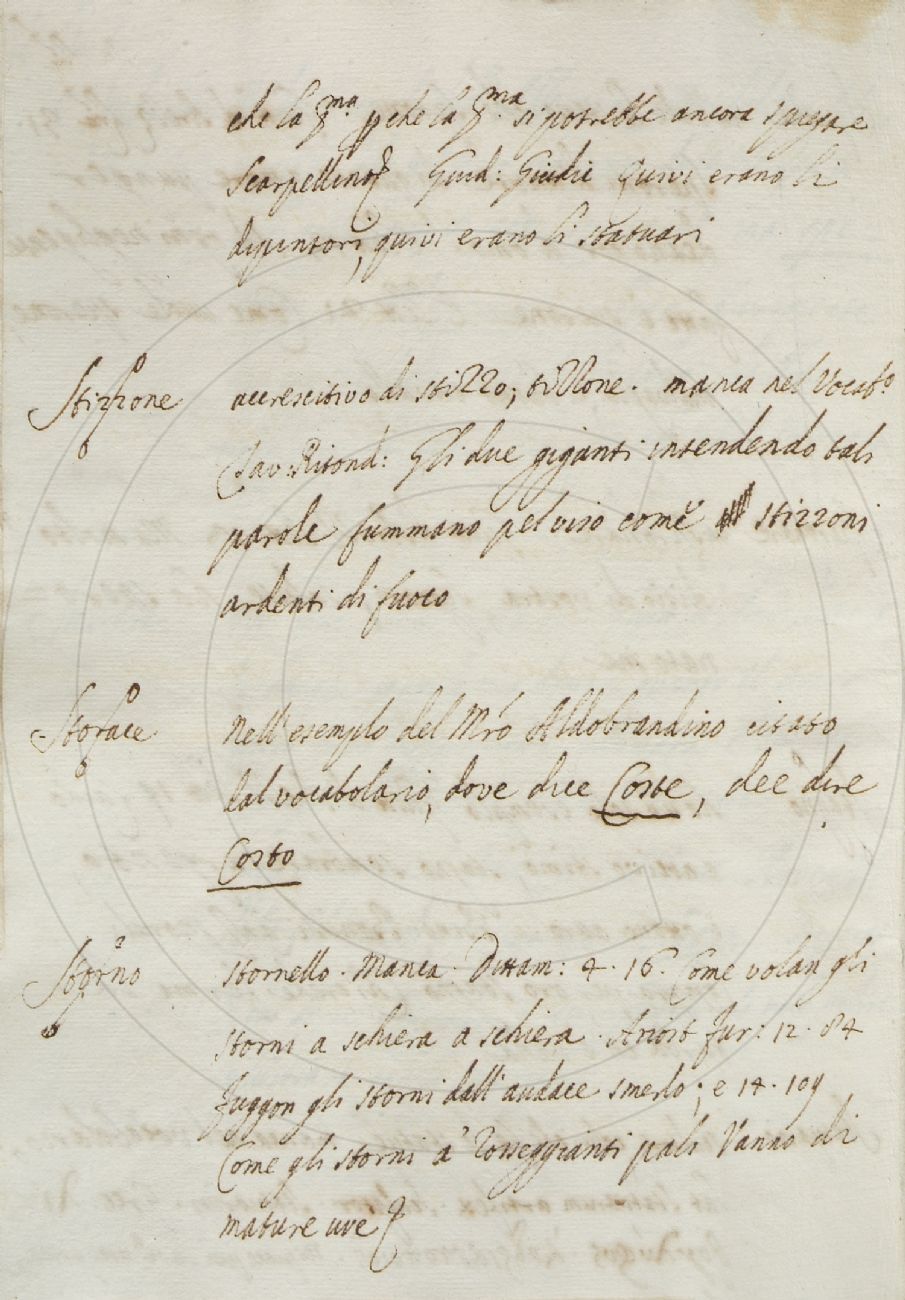 che la p.ma pche la p.ma si potrebbe ancora spiegare
Scarpellino Guid: Giudic Quivi erano li
dipintori, quivi erano li statuari
Stizzone accrescitivo di stizzo; tizzone. manca nel Vocab.o
Tav: Ritond: Gli due giganti intendendo tali
parole fummano pel viso come stizzoni
ardenti di fuoco
Storace Nell'esempio del Mro Aldobrandino citato
dal vocabolario, dove dice Coste, dee dire
Costo
Storno stornello. Manca. Dittam: 4. 16. Come volan gli
storni a schiera a schiera. Ariost fur: 12. 84
fuggon gli storni dall'audace smerlo; e 14. 109
Come gli storni a' rosseggianti pali Vanno di
mature uve